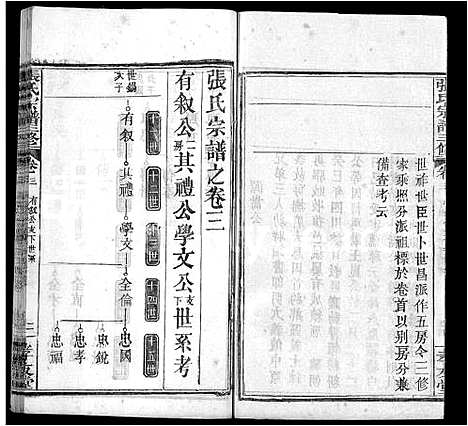 張氏宗譜三修
卷
世祥世臣世卜世昌派作五房今三修
家乘照分派祖標於卷首以別房分兼
備查考云
孝友堂
張氏宗譜之卷三
有叙公二房其禮公學文公支下世系考
十一世
十二世
十三世
十四世
十五世
世錫
大子
有叙
其禮
學文
全倫
忠國
忠銳
忠孝
忠福
張氏宗譜三修
卷三
有叙公支下世系
孝友堂